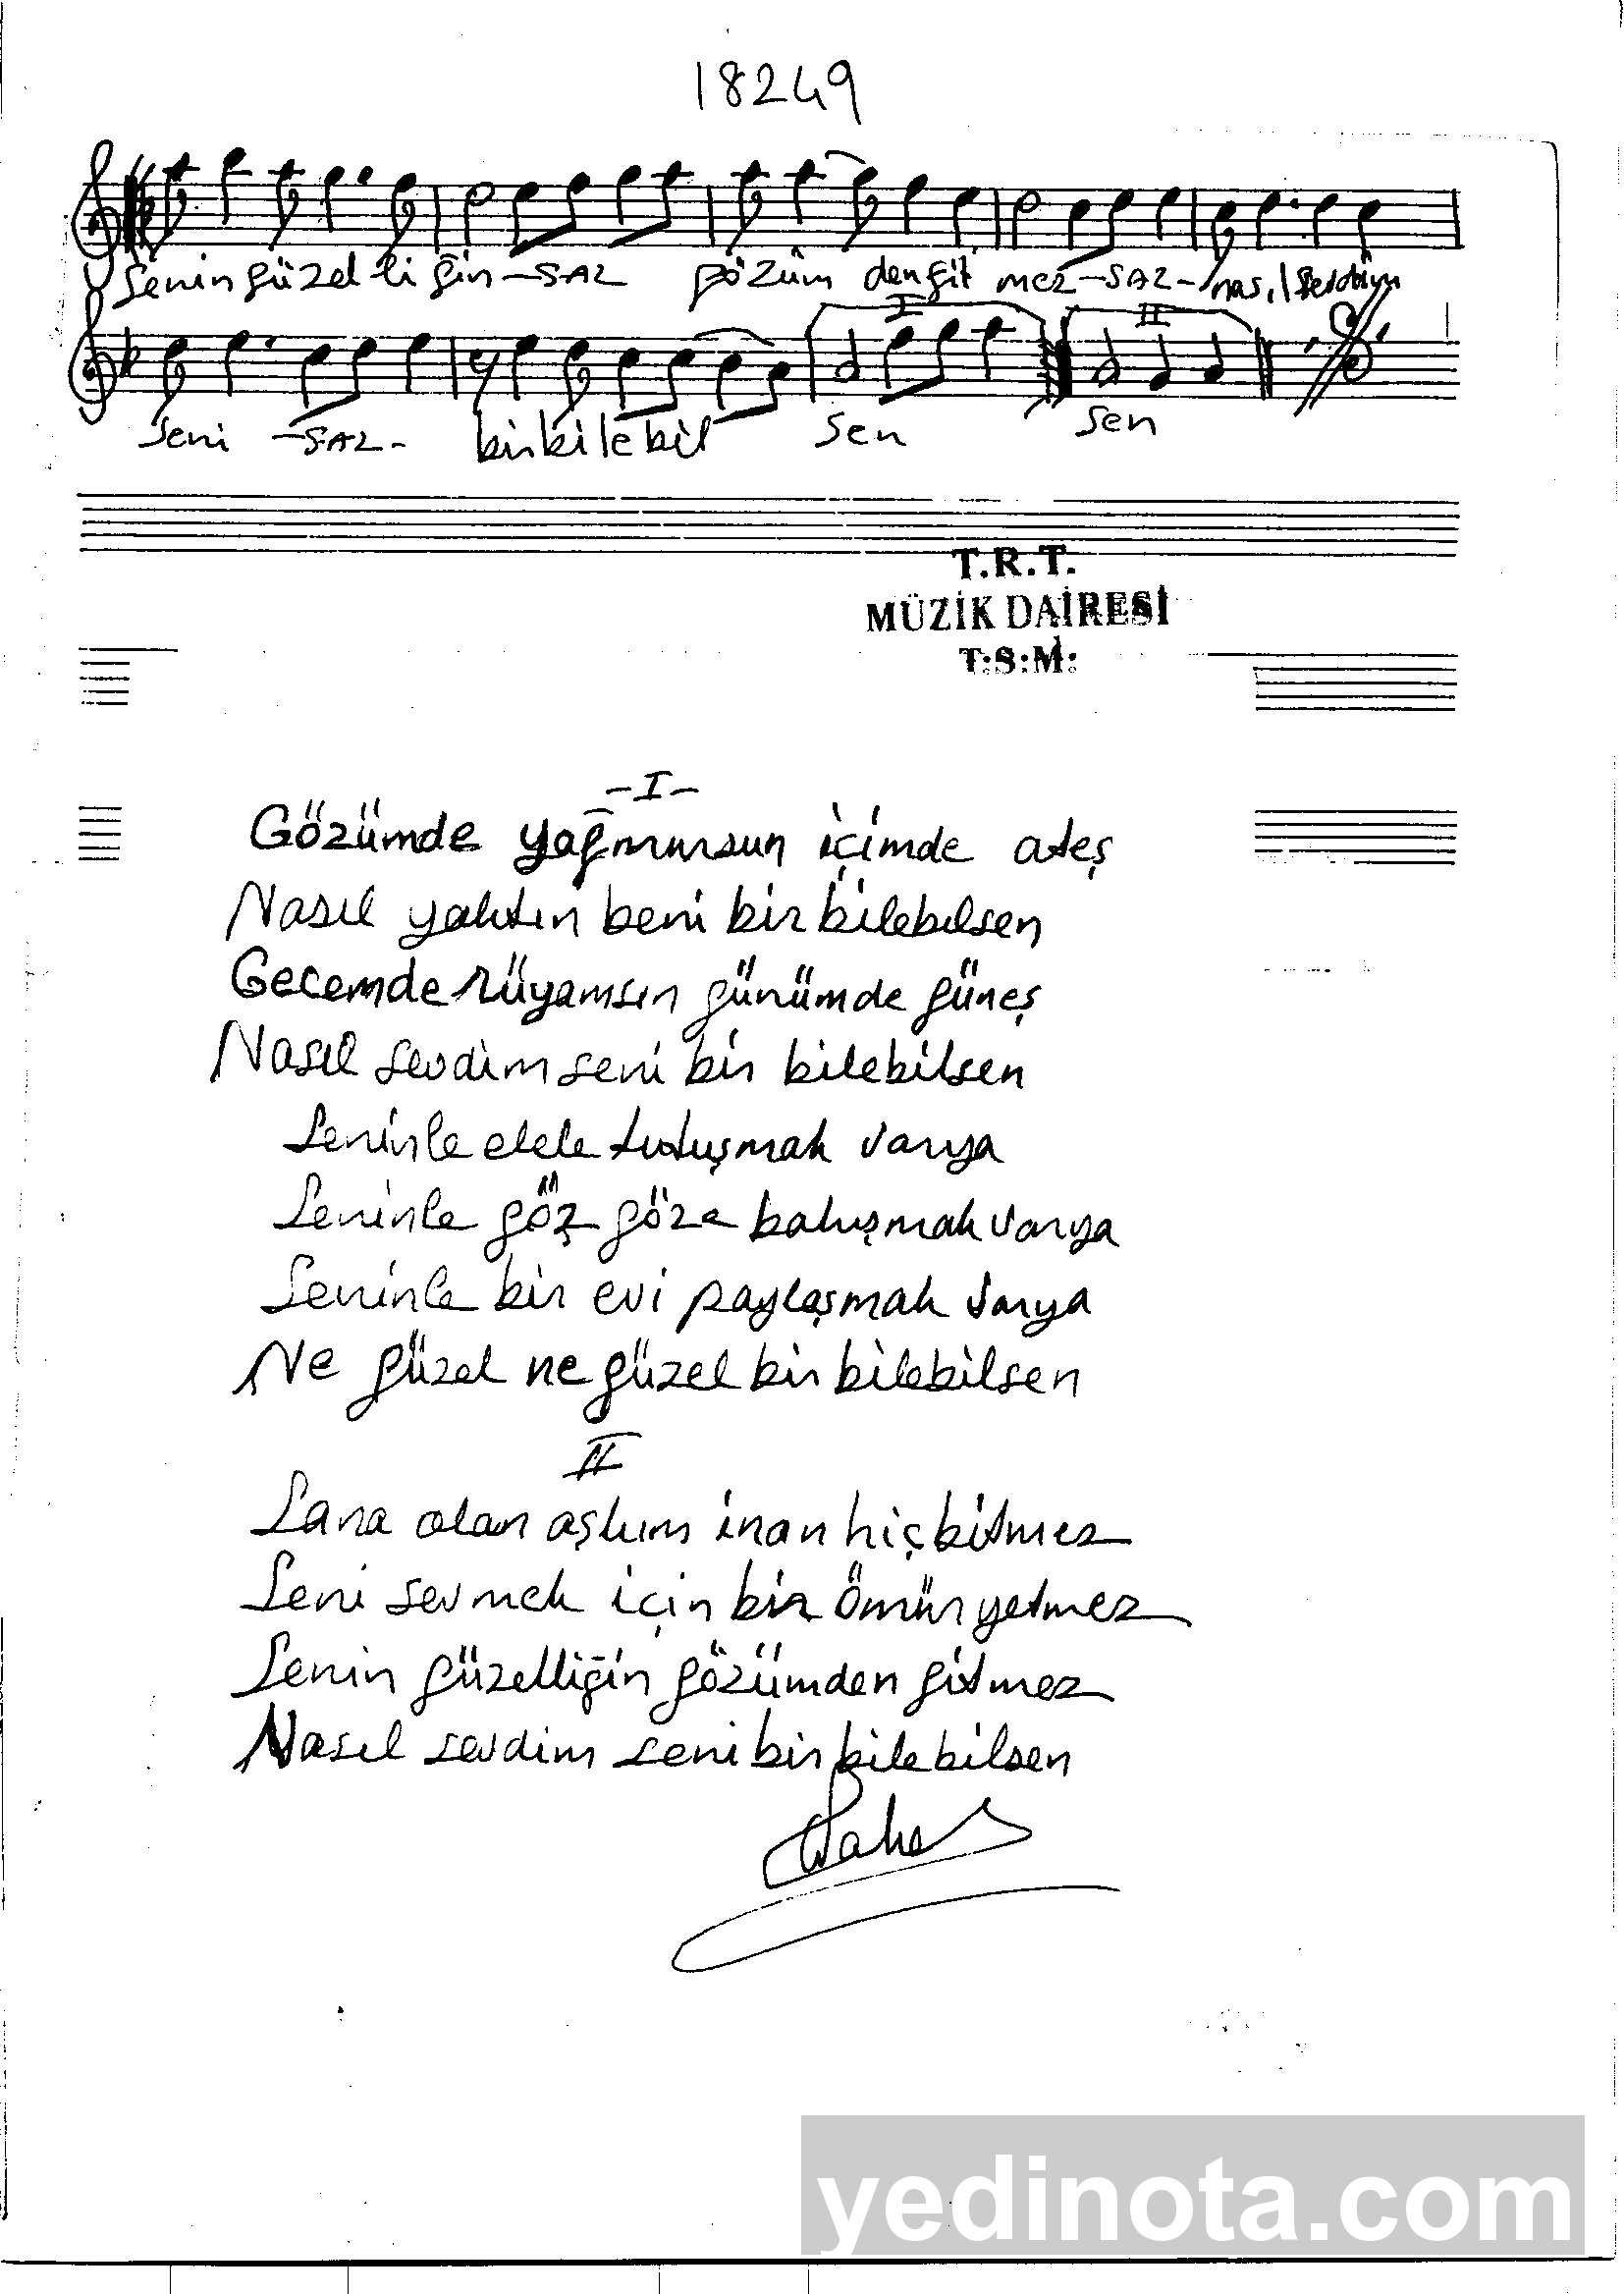 18249
Senin güzel li ğin -SAZ gözüm den git mez -SAZ- nasıl sevdim
I II
seni -SAZ- bir bile bil sen sen
T.R.T.
MÜZİK DAİRESİ
T.S.M.
-I-
Gözümde yağmursun içimde ateş
Nasıl yaktın beni bir bilebilsen
Gecemde rüyamsın günümde güneş
Nasıl sevdim seni bir bilebilsen
Seninle elele tutuşmak varya
Seninle göz göze bakışmak varya
Seninle bir evi paylaşmak varya
Ne güzel ne güzel bir bilebilsen
II
Sana olan aşkım inan hiç bitmez
Seni sevmek için bir ömür yetmez
Senin güzelliğin gözümden gitmez
Nasıl sevdim seni bir bilebilsen
yedinota.com